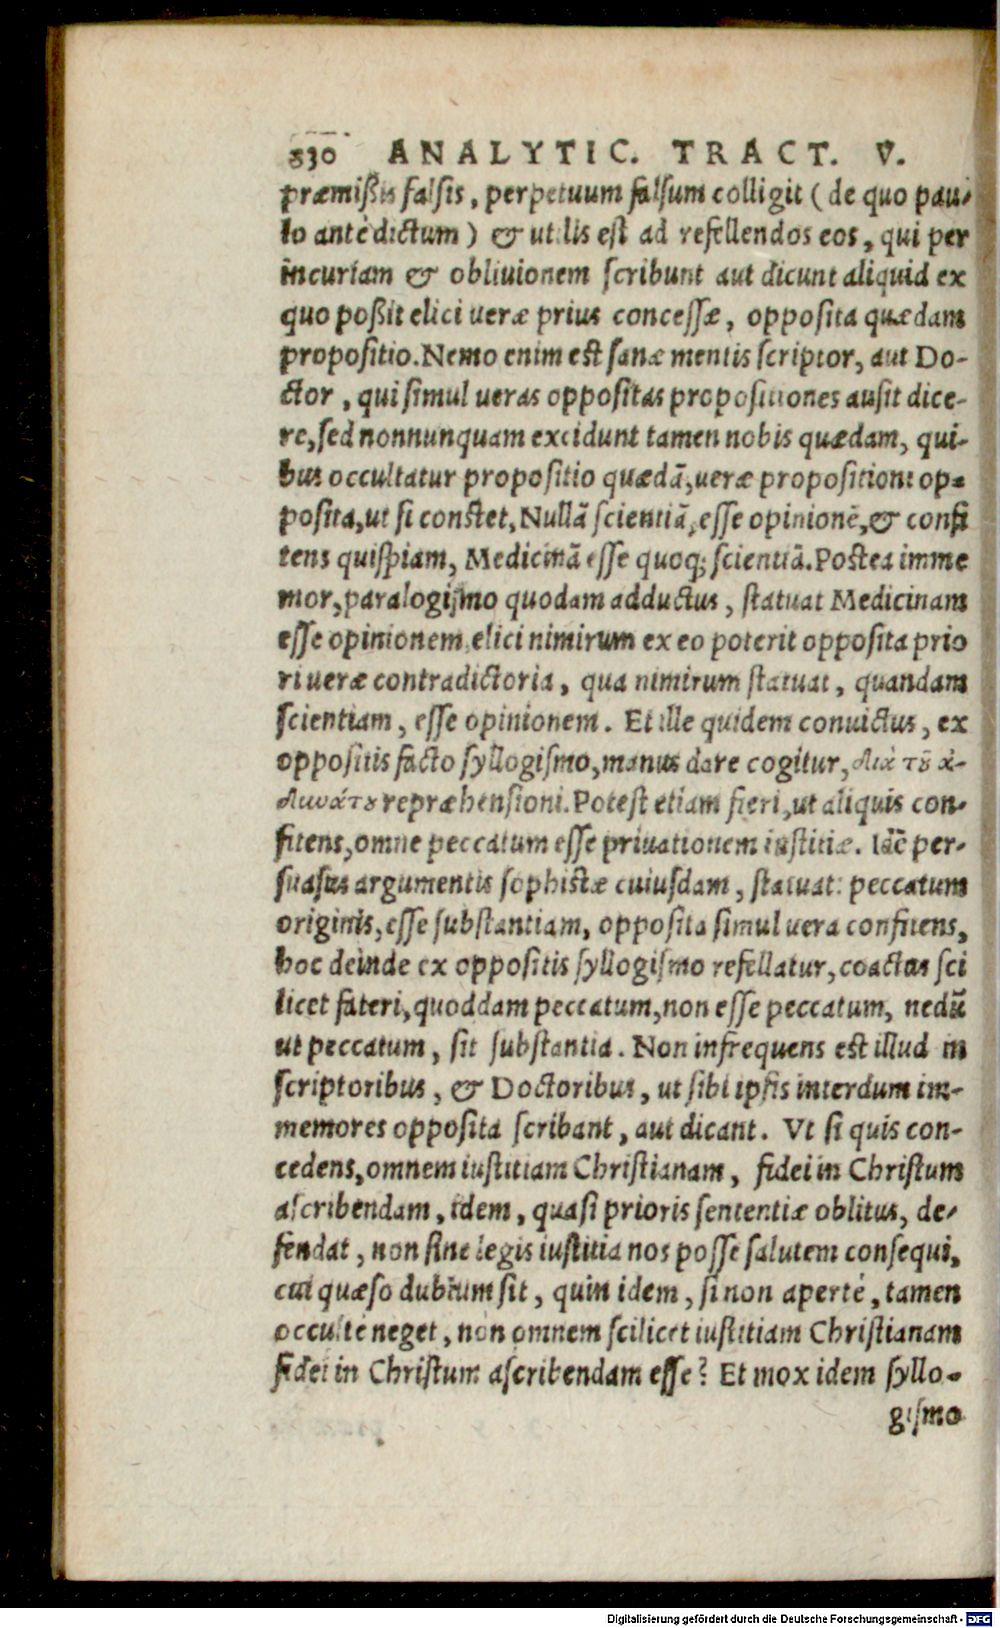 330 ANALYTIC. TRACT. V.
præmißis falsis, perpetuum falsum colligit ( de quo pau-
lo antè dictum ) & utilis est ad refellendos eos, qui per
incuriam & obliuionem scribunt aut dicunt aliquid ex
quo poßit elici ueræ prius concessæ, opposita quædam
propositio. Nemo enim est sanæ mentis scriptor, aut Do-
ctor, qui simul ueras oppositas propositiones ausit dice-
re, sed nonnunquam excidunt tamen nobis quædam, qui-
bus occultatur propositio quædã, ueræ propositioni op-
posita, ut si constet, Nullã scientiã, esse opinionẽ, & confi
tens quispiam, Medicinã esse quoq; scientiã. Postea imme
mor, paralogismo quodam adductus, statuat Medicinam
esse opinionem, elici nimirum ex eo poterit opposita prio
ri ueræ contradictoria, qua nimirum statuat, quandam
scientiam, esse opinionem. Et ille quidem conuictus, ex
oppositis facto syllogismo, manus dare cogitur, διὰ τοῦ ἀ-
δυνάτου repræhensioni. Potest etiam fieri, ut aliquis con-
fitens, omne peccatum esse priuationem iustitiæ. Iãc per-
suasus argumentis sophistæ cuiusdam, statuat: peccatum
originis, esse substantiam, opposita simul uera confitens,
hoc deinde ex oppositis syllogismo refellatur, coactus sci
licet fateri, quoddam peccatum, non esse peccatum, nedũ
ut peccatum, sit substantia. Non infrequens est illud in
scriptoribus, & Doctoribus, ut sibi ipsis interdum im-
memores opposita scribant, aut dicant. Vt si quis con-
cedens, omnem iustitiam Christianam, fidei in Christum
ascribendam, idem, quasi prioris sententiæ oblitus, de-
fendat, non sine legis iustitia nos posse salutem consequi,
cui quæso dubium sit, quin idem, si non apertè, tamen
occultè neget, non omnem scilicet iustitiam Christianam
fidei in Christum ascribendam esse? Et mox idem syllo-
gismo
Digitalisierung gefördert durch die Deutsche Forschungsgemeinschaft - DFG